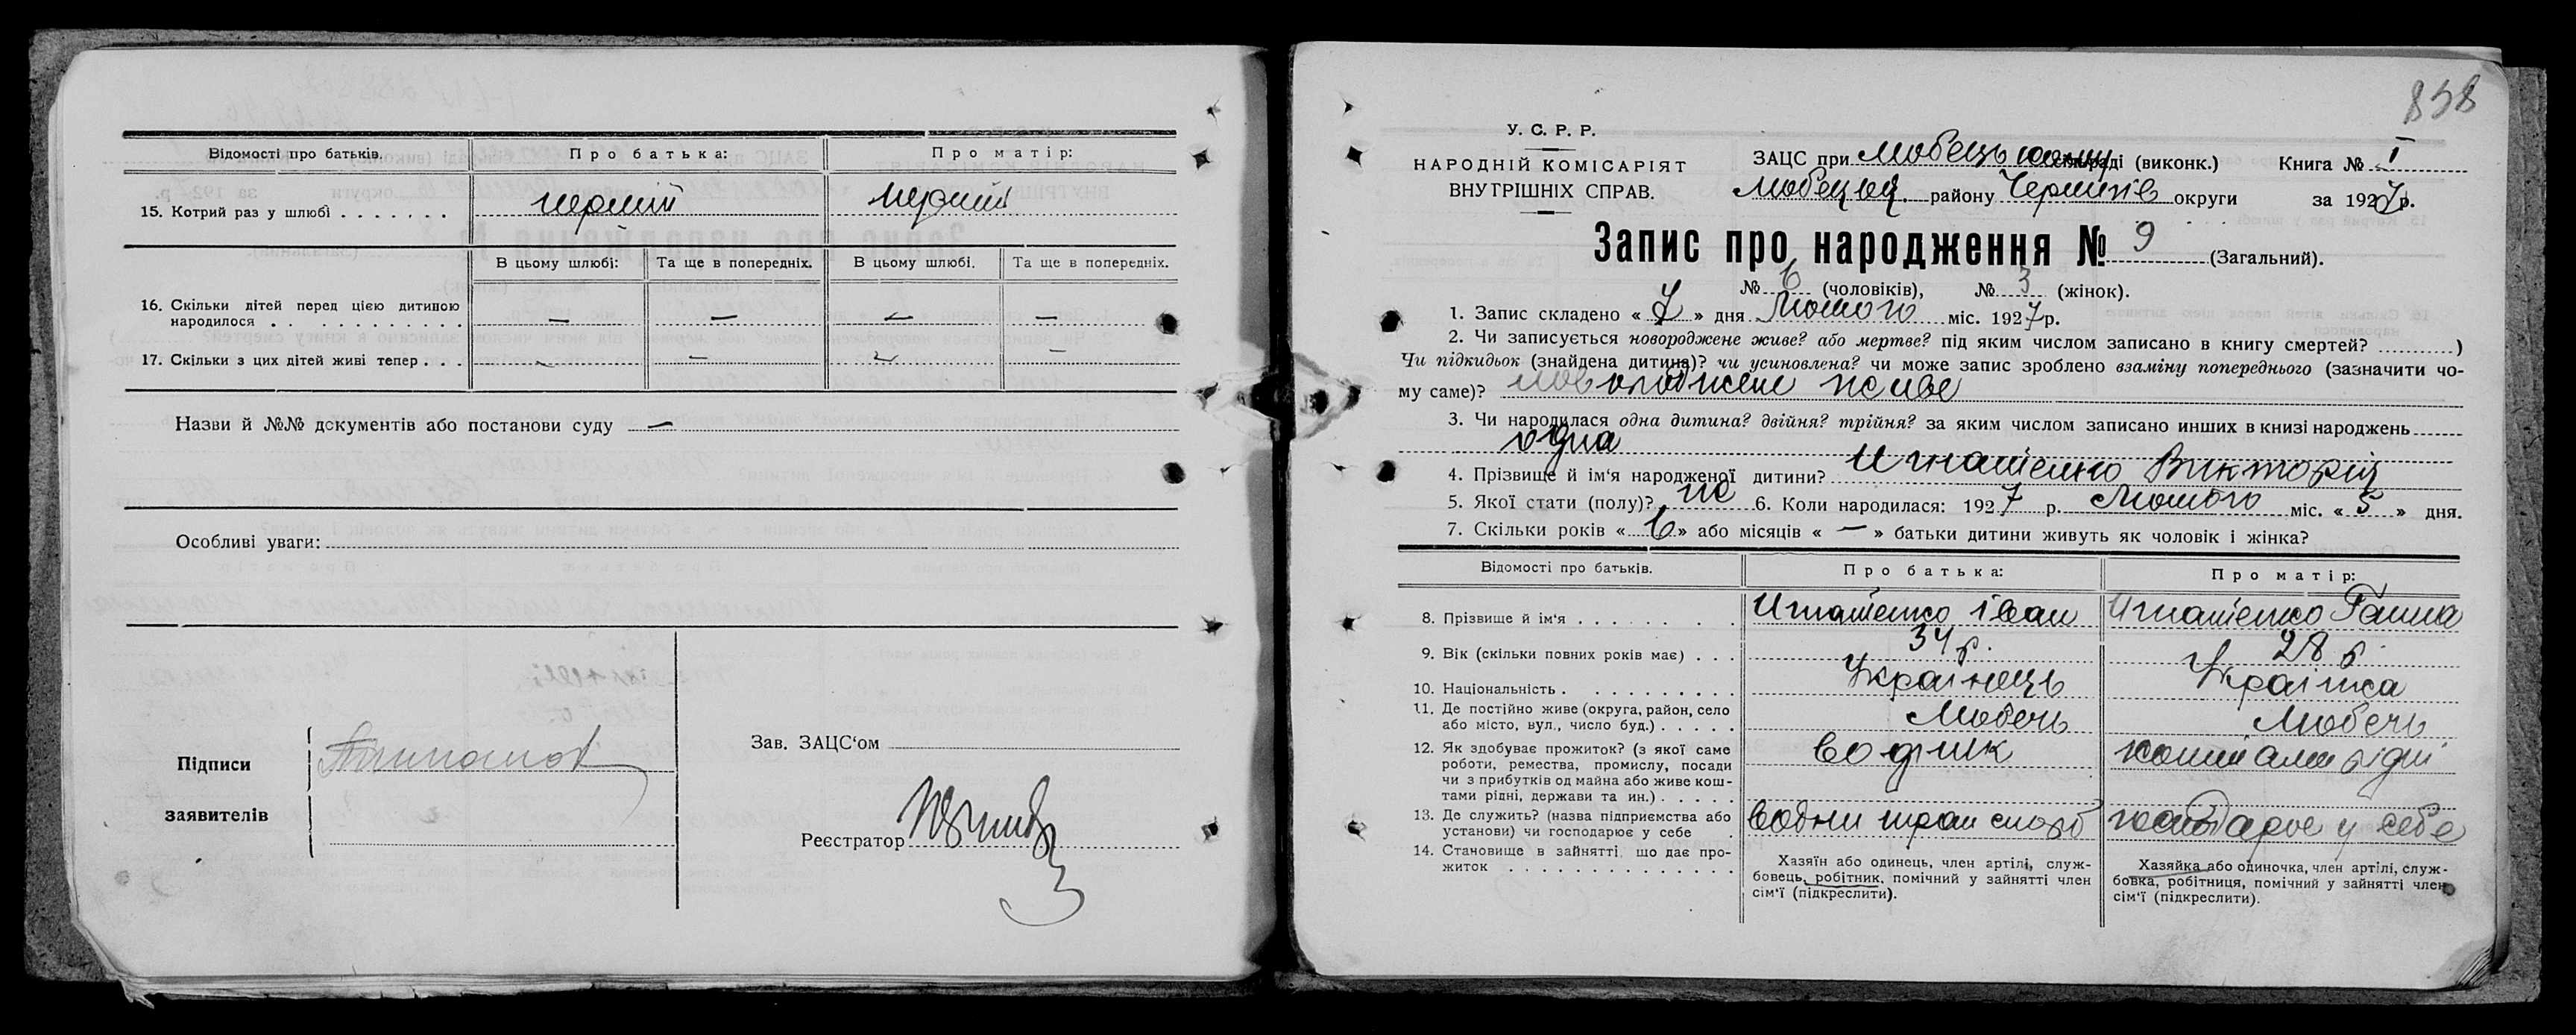 Відомості про батьків.
Про батька:
Про матір:
15. Котрий раз у шлюбі . . . . . . .
перший
перший
В цьому шлюбі:
Та ще в попередніх.
В цьому шлюбі.
Та ще в попередніх.
16. Скільки дітей перед цією дитиною
народилося . . . . . . . . . . . .
— — — —
17. Скільки з цих дітей живі тепер . . .
— — — —
Назви й №№ документів або постанови суду —
Особливі уваги:
Підписи
заявителів
Зав. ЗАЦС'ом
Реєстратор
838
У. С. Р. Р.
НАРОДНІЙ КОМІСАРІЯТ
ВНУТРІШНІХ СПРАВ.
ЗАЦС при Любецькому раді (виконк.) Книга № I
Любецьк. району Чернигів округи за 1927 р.
Запис про народження № 9 (Загальний).
№ 6 (чоловіків), № 3 (жінок).
1. Запис складено « 7 » дня Лютого міс. 1927 р.
2. Чи записується новороджене живе? або мертве? під яким числом записано в книгу смертей? )
Чи підкидьок (знайдена дитина)? чи усиновлена? чи може запис зроблено взаміну попереднього (зазначити чо-
му саме)? новороджене живе
3. Чи народилася одна дитина? двійня? трійня? за яким числом записано инших в книзі народжень
одна
4. Прізвище й ім'я народженої дитини? Игнатенко Викторія
5. Якої стати (полу)? ж 6. Коли народилася: 1927 р. Лютого міс. « 5 » дня.
7. Скільки років « 6 » або місяців « — » батьки дитини живуть як чоловік і жінка?
Відомості про батьків.
Про батька:
Про матір:
8. Прізвище й ім'я . . . . . . . .
Игнатенко Іван
Игнатенко Ганна
9. Вік (скільки повних років має) . . .
34 р.
28 р.
10. Національність . . . . . . . . . .
Українець
Українка
11. Де постійно живе (округа, район, село
або місто, вул., число буд.) . . . . .
Любечь
Любечь
12. Як здобуває прожиток? (з якої саме
роботи, ремества, промислу, посади
чи з прибутків од майна або живе кош-
тами рідні, держави та ин.) . . . . .
водник
коштами рідні
13. Де служить? (назва підприємства або
установи) чи господарює у себе .
водни транспорт
господарює у себе
14. Становище в зайнятті, що дає про-
житок . . . . . . . . . . . . . .
Хазяїн або одинець, член артілі, служ-
бовець, робітник, помічний у зайнятті член
сім'ї (підкреслити).
Хазяйка або одиночка, член артілі, служ-
бовка, робітниця, помічний у зайнятті член
сім'ї (підкреслити).